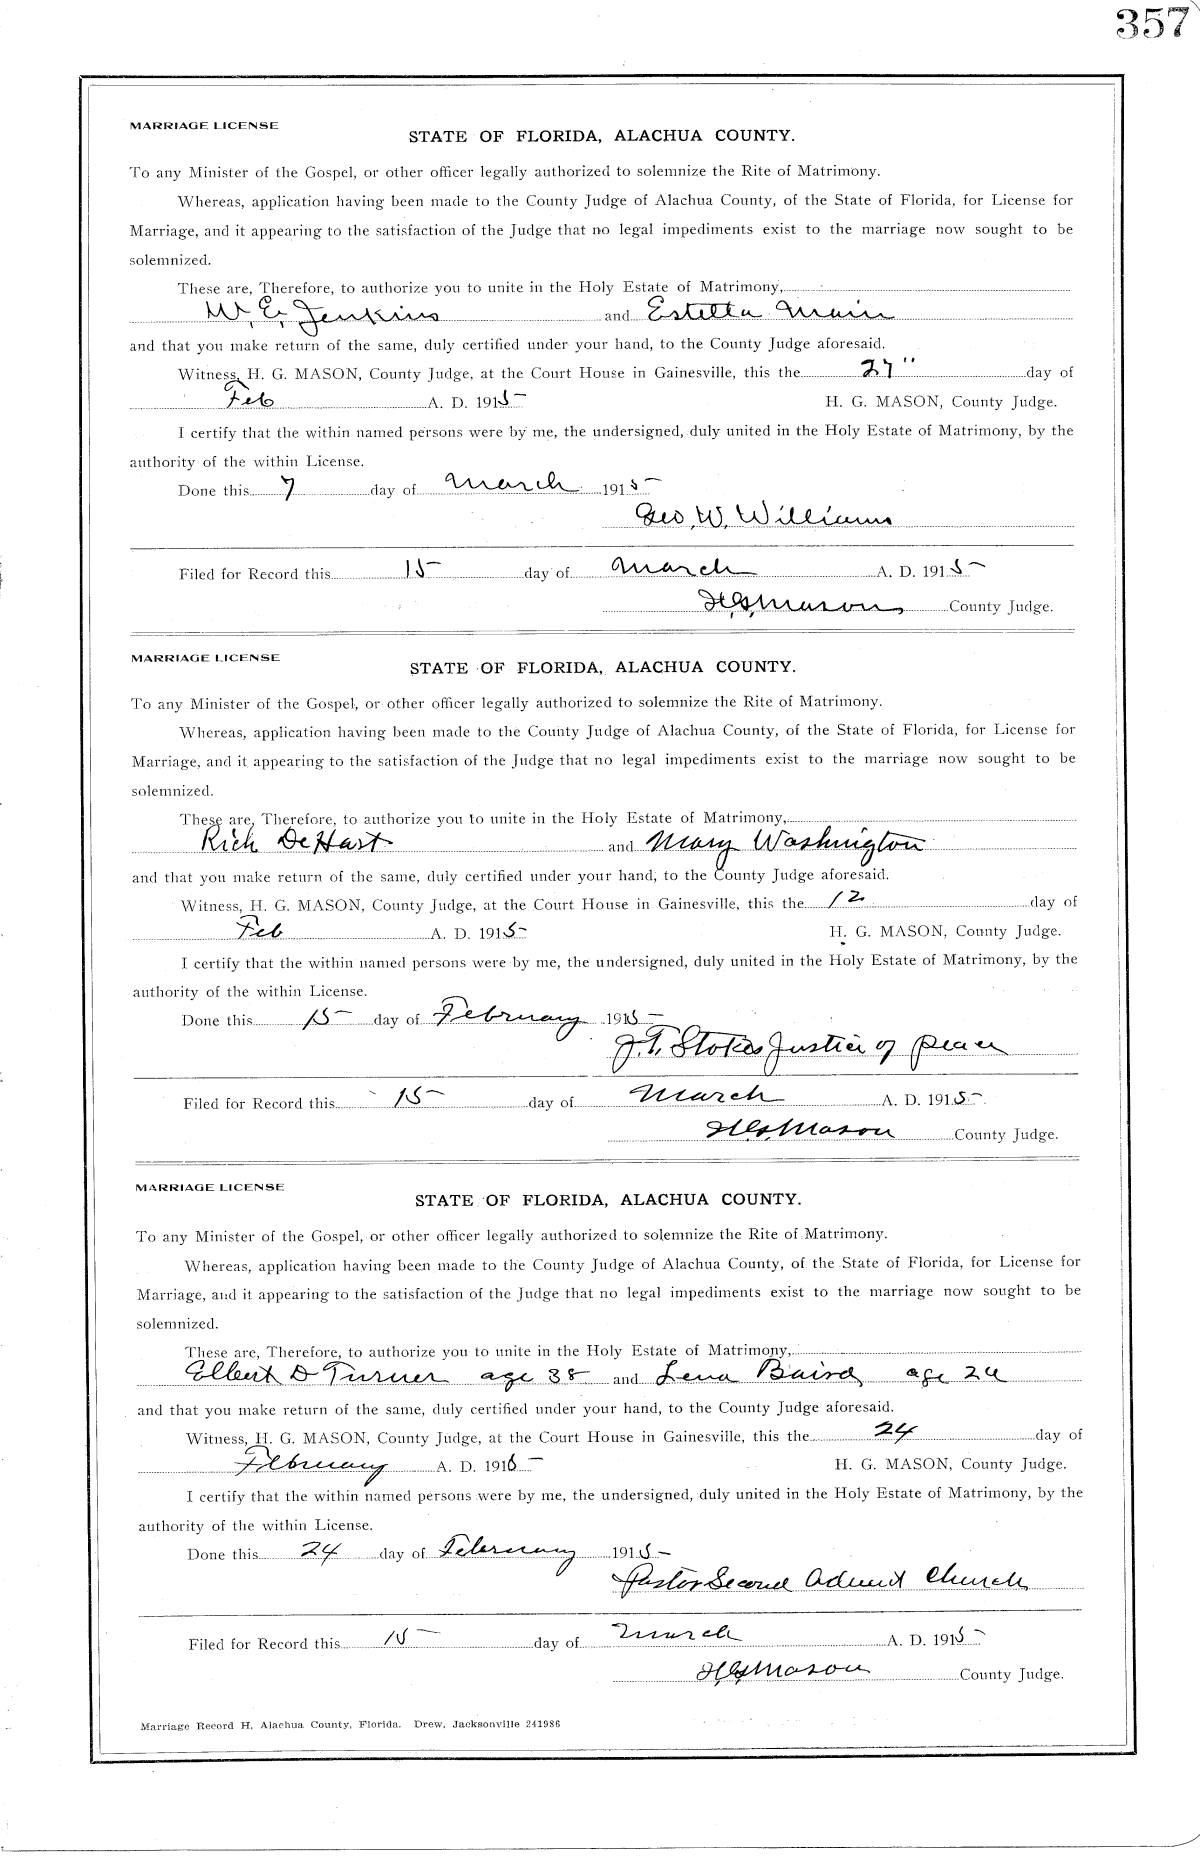 357
MARRIAGE LICENSE
STATE OF FLORIDA, ALACHUA COUNTY.
To any Minister of the Gospel, or other officer legally authorized to solemnize the Rite of Matrimony.
Whereas, application having been made to the County Judge of Alachua County, of the State of Florida, for License for
Marriage, and it appearing to the satisfaction of the Judge that no legal impediments exist to the marriage now sought to be
solemnized.
These are, Therefore, to authorize you to unite in the Holy Estate of Matrimony,
W. E. Jenkins and Estella Main
and that you make return of the same, duly certified under your hand, to the County Judge aforesaid.
Witness, H. G. MASON, County Judge, at the Court House in Gainesville, this the 27" day of
Feb A. D. 1915 H. G. MASON, County Judge.
I certify that the within named persons were by me, the undersigned, duly united in the Holy Estate of Matrimony, by the
authority of the within License.
Done this 7 day of March 1915
Geo. W. Williams
Filed for Record this 15 day of March A. D. 1915
H. G. Mason, County Judge.
MARRIAGE LICENSE
STATE OF FLORIDA, ALACHUA COUNTY.
To any Minister of the Gospel, or other officer legally authorized to solemnize the Rite of Matrimony.
Whereas, application having been made to the County Judge of Alachua County, of the State of Florida, for License for
Marriage, and it appearing to the satisfaction of the Judge that no legal impediments exist to the marriage now sought to be
solemnized.
These are, Therefore, to authorize you to unite in the Holy Estate of Matrimony,
Rich DeHart and Mary Washington
and that you make return of the same, duly certified under your hand, to the County Judge aforesaid.
Witness, H. G. MASON, County Judge, at the Court House in Gainesville, this the 12 day of
Feb A. D. 1915 H. G. MASON, County Judge.
I certify that the within named persons were by me, the undersigned, duly united in the Holy Estate of Matrimony, by the
authority of the within License.
Done this 15 day of February 1915
J. T. Stokes Justice of peace
Filed for Record this 15 day of March A. D. 1915
H. G. Mason County Judge.
MARRIAGE LICENSE
STATE OF FLORIDA, ALACHUA COUNTY.
To any Minister of the Gospel, or other officer legally authorized to solemnize the Rite of Matrimony.
Whereas, application having been made to the County Judge of Alachua County, of the State of Florida, for License for
Marriage, and it appearing to the satisfaction of the Judge that no legal impediments exist to the marriage now sought to be
solemnized.
These are, Therefore, to authorize you to unite in the Holy Estate of Matrimony,
Elbert D Turner age 38 and Lena Baird age 24
and that you make return of the same, duly certified under your hand, to the County Judge aforesaid.
Witness, H. G. MASON, County Judge, at the Court House in Gainesville, this the 24 day of
February A. D. 1915 H. G. MASON, County Judge.
I certify that the within named persons were by me, the undersigned, duly united in the Holy Estate of Matrimony, by the
authority of the within License.
Done this 24 day of February 1915
Pastor Second Advent Church
Filed for Record this 15 day of March A. D. 1915
H. G. Mason County Judge.
Marriage Record H, Alachua County, Florida. Drew, Jacksonville 241986